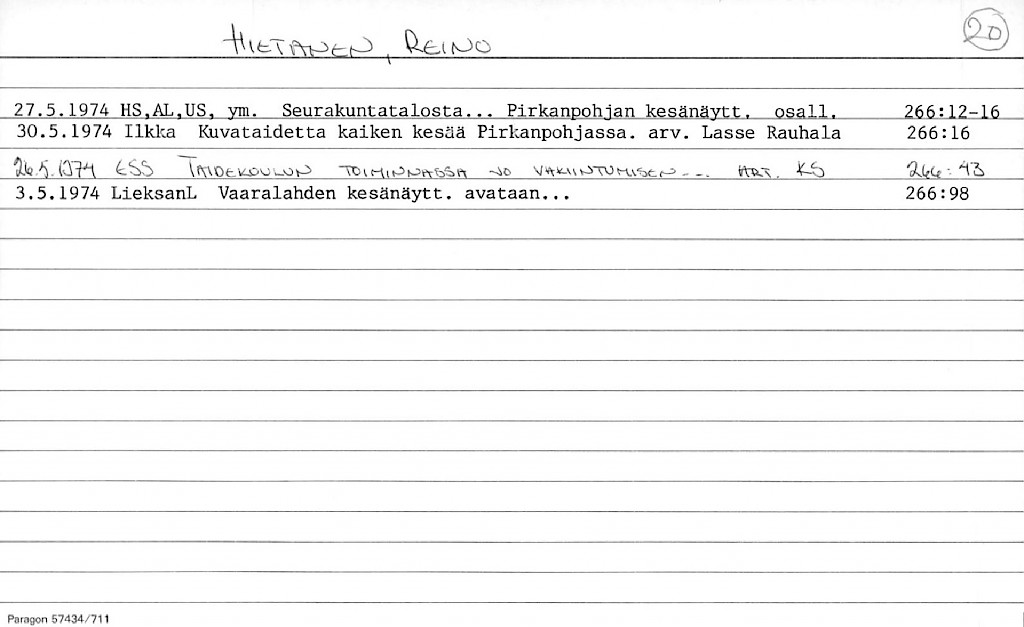 HIETANEN, REINO 20
27.5.1974 HS,AL,US, ym. Seurakuntatalosta... Pirkanpohjan kesänäytt. osall. 266:12-16
30.5.1974 Ilkka Kuvataidetta kaiken kesää Pirkanpohjassa. arv. Lasse Rauhala 266:16
26.5.1974 ESS TAIDEKOULUN TOIMINNASSA JO VAKIINTUMISEN... ART. KS 266:43
3.5.1974 LieksanL Vaaralahden kesänäytt. avataan... 266:98
Paragon 57434/711